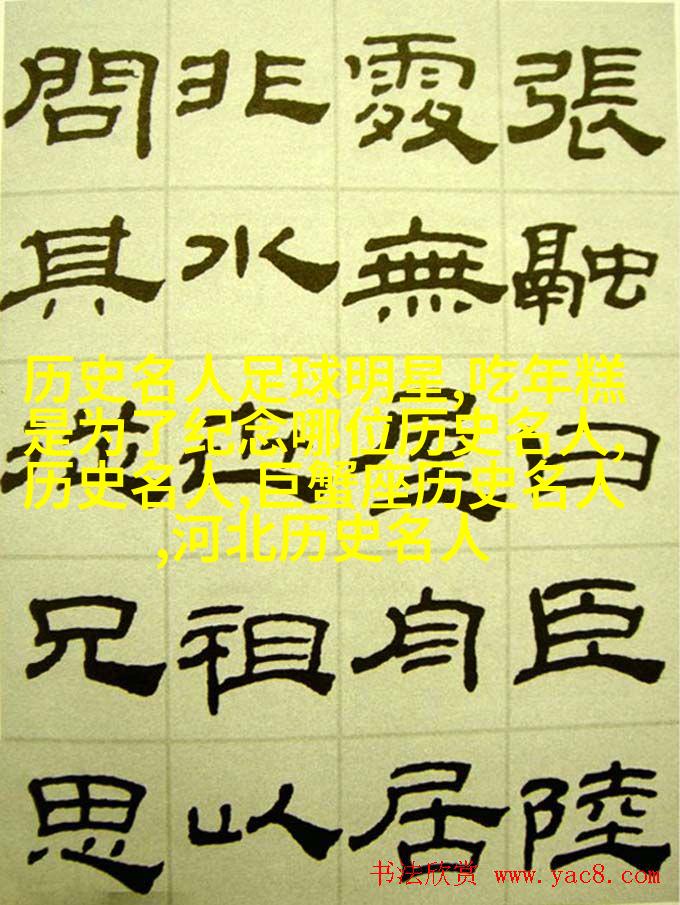 張融曰臣陸
處無屋舟居
非水祖以
問其從兄思
历史名人足球明星,吃年糕
是为了纪念哪位历史名人,
历史名人,巨蟹座历史名人
,河北历史名人
书法欣赏 www.yac8.com